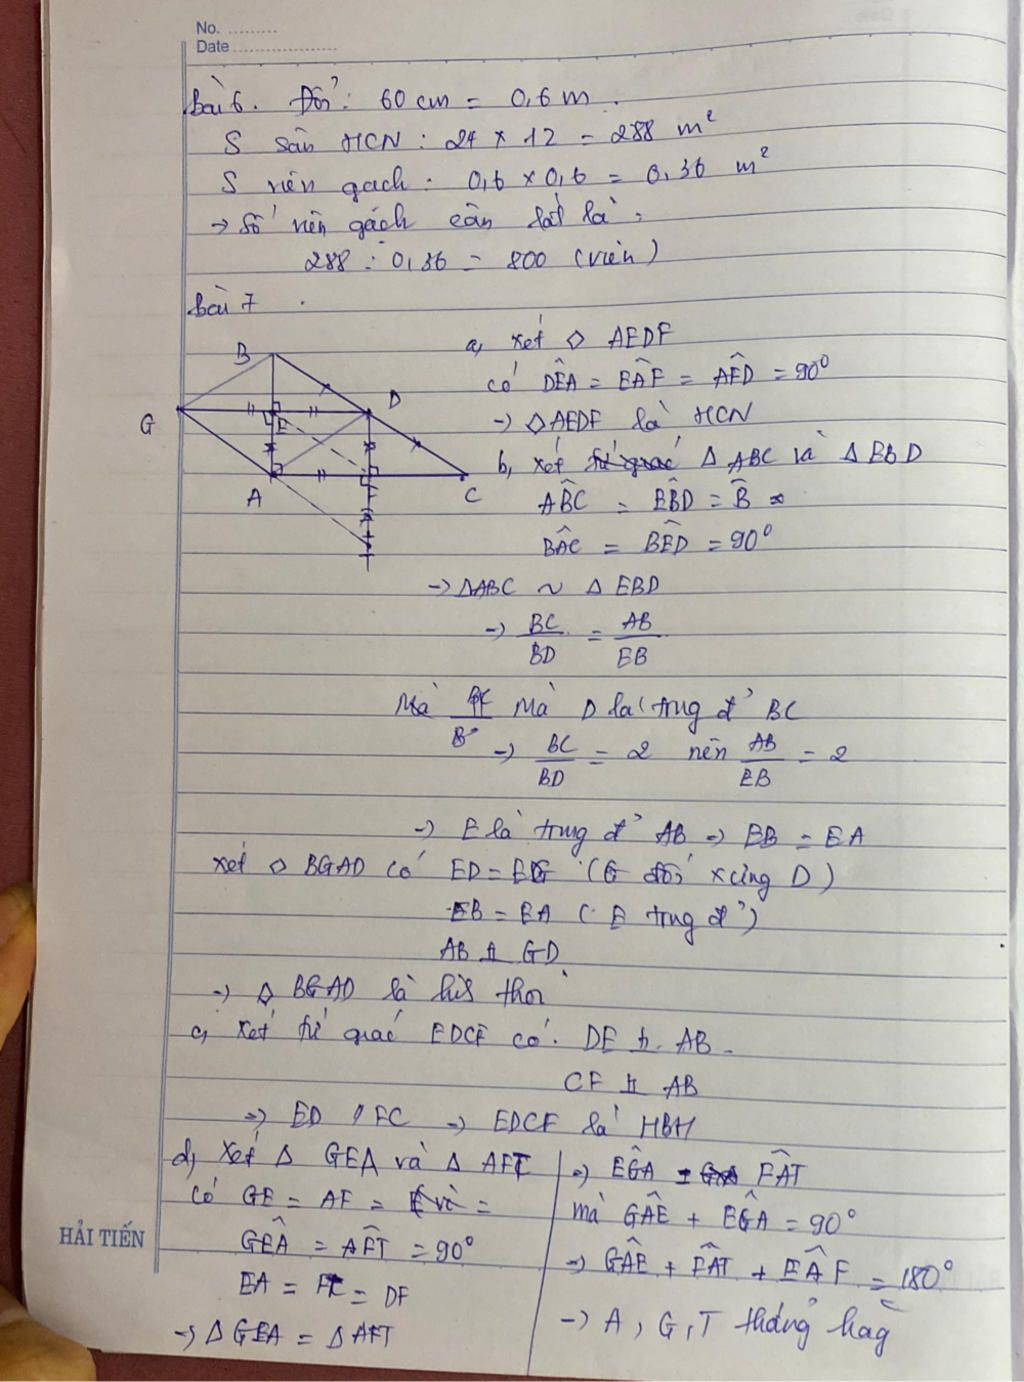 No. .........
Date ..................
Bài 6. Đổi: 60 cm = 0,6 m.
S sân HCN : 24 x 12 = 288 m²
S viên gạch : 0,6 x 0,6 = 0,36 m²
→ Số viên gạch cần lát là :
288 : 0,36 = 800 (viên)
Bài 7 .
B
D
G
E
A
F
C
T
a, xét ◇ AEDF
có DÊA = EÂF = AF̂D = 90°
→ ◇AEDF là HCN
b, xét tứ giác Δ ABC và Δ EBD
AB̂C = EB̂D = B̂
BÂC = BÊD = 90°
→ ΔABC ~ Δ EBD
→ BC/BD = AB/EB
Mà Mà D là trug đ' BC
→ BC/BD = 2 nên AB/EB = 2
→ E là trug đ' AB → EB = EA
xét ◇ BGAD có ED = EG (G đối xứng D)
EB = EA ( E trug đ')
AB ⊥ GD
→ ◇ BGAD là hìh thoi
c, xét tứ giác EDCF có. DE ⊥ AB.
CF ⊥ AB
→ ED // FC → EDCF là HBH
d, xét Δ GEA và Δ AFT
có GE = AF =
GÊA = AF̂T = 90°
EA = FT = DF
→ Δ GEA = Δ AFT
→ EĜA = FÂT
mà GÂE + EĜA = 90°
→ GÂE + FÂT + EÂF = 180°
→ A, G, T thẳng hàg
HẢI TIẾN